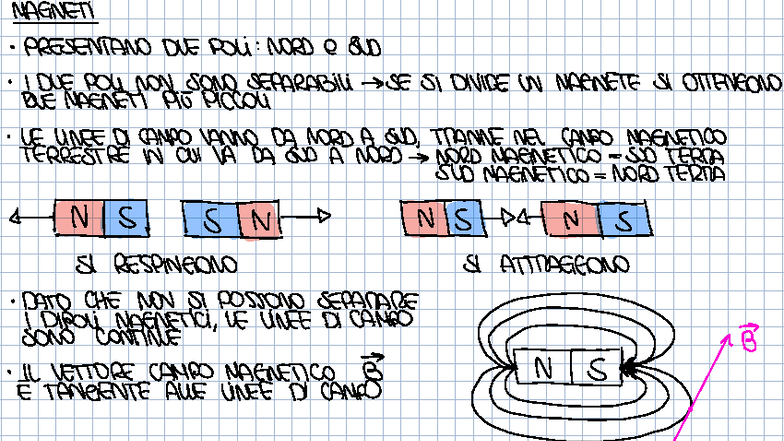 MAGNETI
· PRESENTANO DUE POLI: NORD e SUD
· I DUE POLI NON SONO SEPARABILI → SE SI DIVIDE UN MAGNETE SI OTTENGONO
DUE MAGNETI PIÙ PICCOLI
· LE LINEE DI CAMPO VANNO DA NORD A SUD, TRANNE NEL CAMPO MAGNETICO
TERRESTRE IN CUI VA DA SUD A NORD → NORD MAGNETICO = SUD TERRA
SUD MAGNETICO = NORD TERRA
N S S N N S N S
SI RESPINGONO SI ATTRAGGONO
· DATO CHE NON SI POSSONO SEPARARE
I DIPOLI MAGNETICI, LE LINEE DI CAMPO
SONO CONTINUE
· IL VETTORE CAMPO MAGNETICO B⃗
È TANGENTE ALLE LINEE DI CAMPO
N S
B⃗